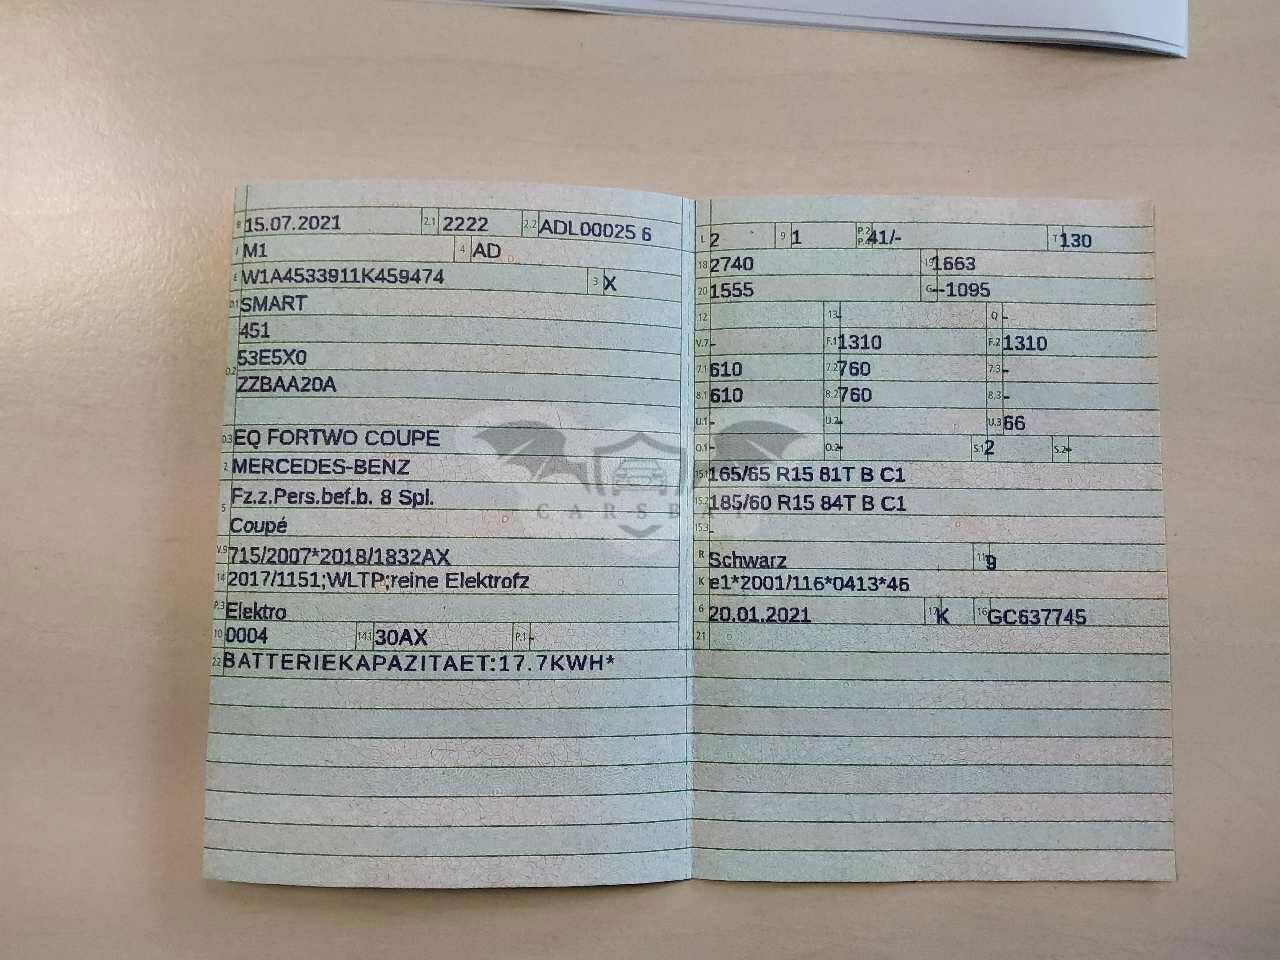 B 15.07.2021 2.1 2222 2.2 ADL00025 6
J M1 4 AD
E W1A4533911K459474 3 X
D.1 SMART
451
53E5X0
D.2 ZZBAA20A
D.3 EQ FORTWO COUPE
2 MERCEDES-BENZ
5 Fz.z.Pers.bef.b. 8 Spl.
Coupé
V.9 715/2007*2018/1832AX
14 2017/1151;WLTP;reine Elektrofz
P.3 Elektro
10 0004 14.1 30AX P.1 -
22 BATTERIEKAPAZITAET:17.7KWH*
L 2 9 1 P.2 P.4 41/- T 130
18 2740 19 1663
20 1555 G -1095
12 13 - Q -
V.7 - F.1 1310 F.2 1310
7.1 610 7.2 760 7.3 -
8.1 610 8.2 760 8.3 -
U.1 - U.2 - U.3 66
O.1 - O.2 - S.1 2 S.2 -
15.1 165/65 R15 81T B C1
15.2 185/60 R15 84T B C1
15.3 -
R Schwarz 11 9
K e1*2001/116*0413*46
6 20.01.2021 17 K 16 GC637745
21